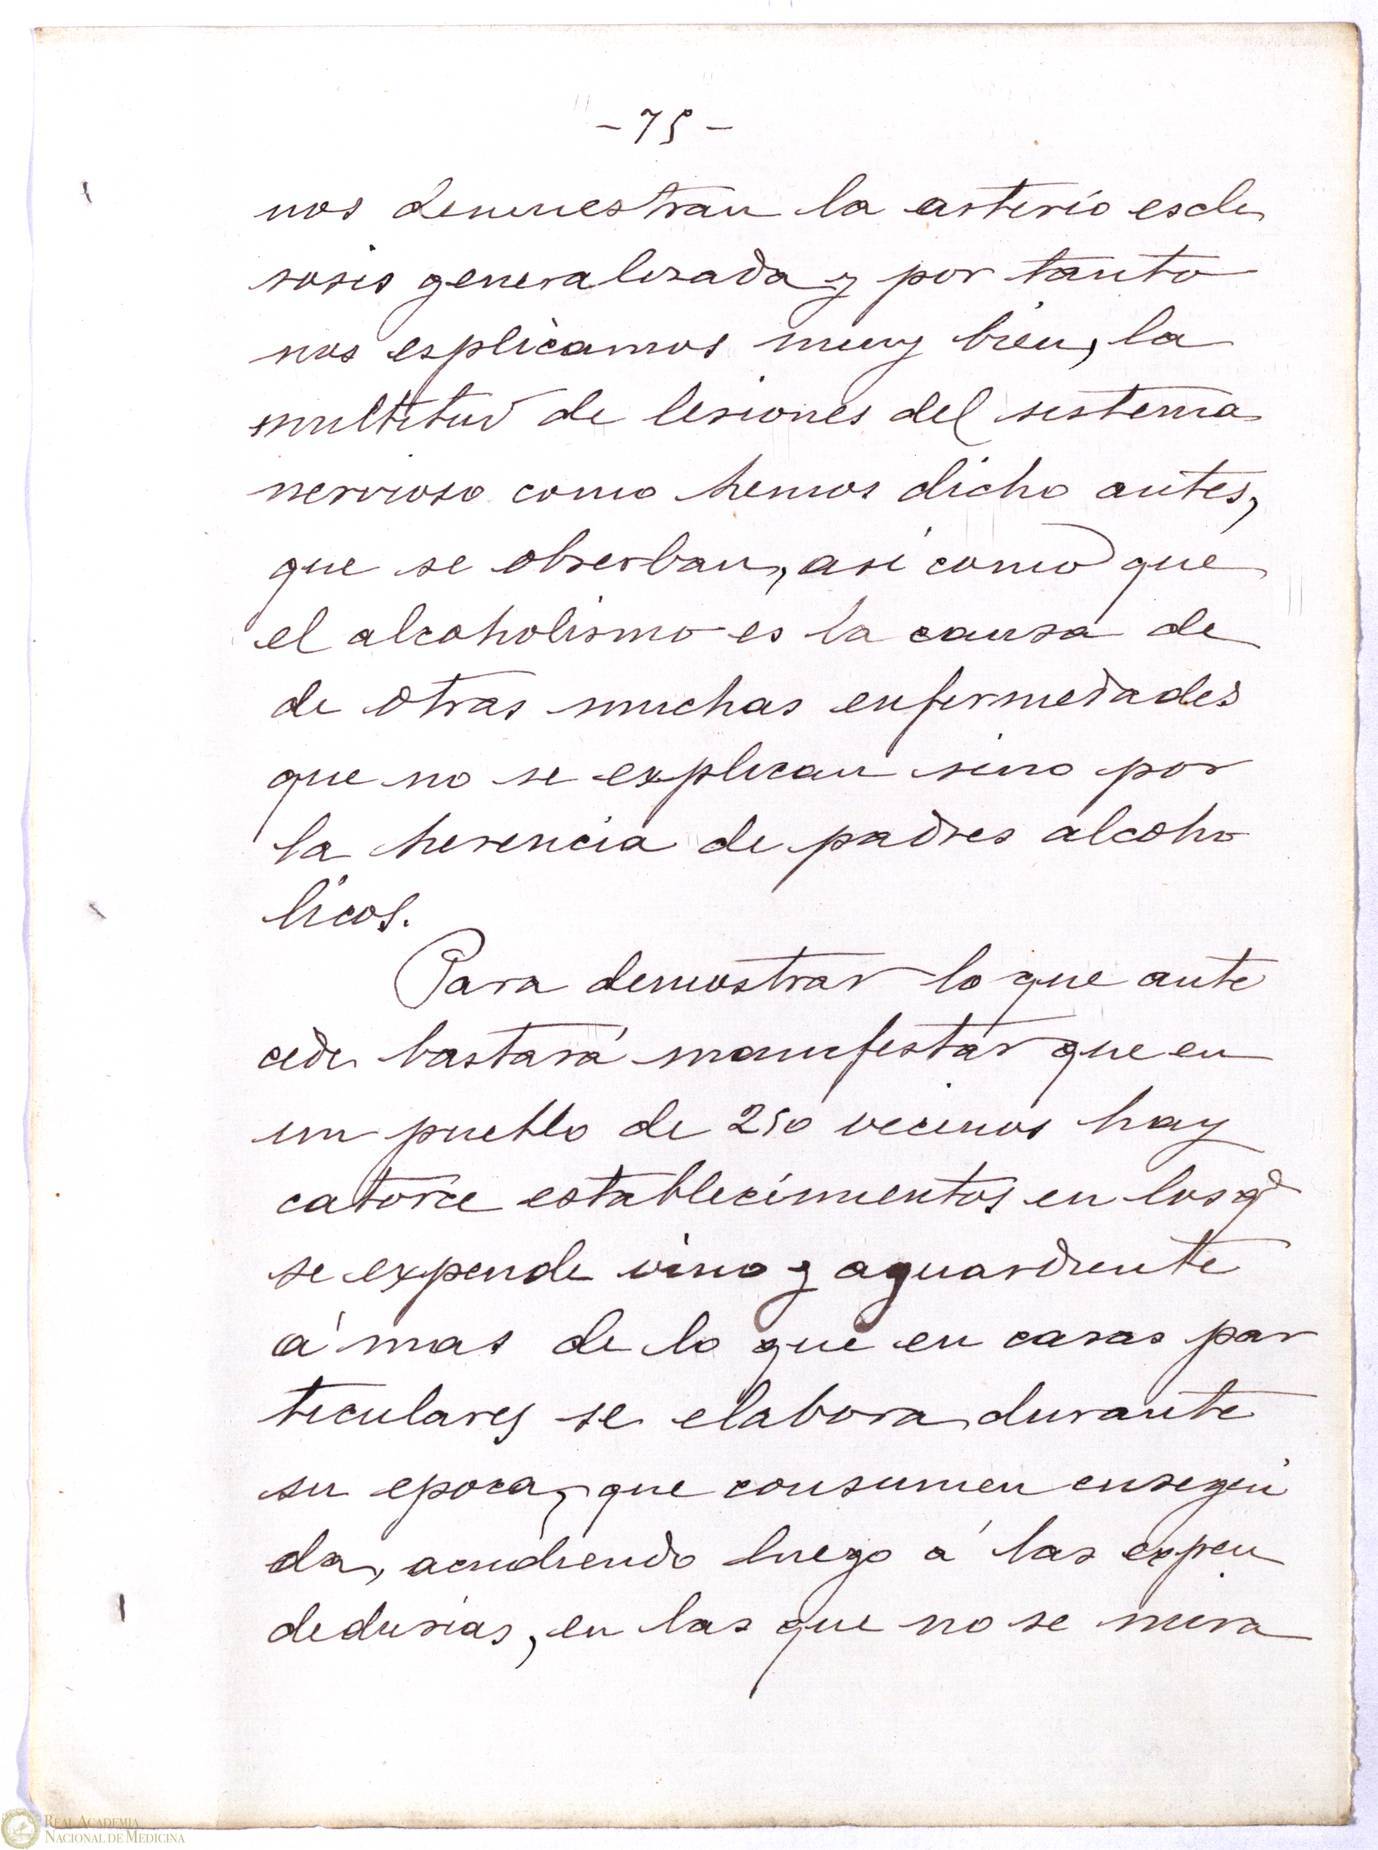 - 75 -
nos demuestran la arterio escle
rosis generalizada y por tanto
nos esplicamos muy bien, la
multitud de lesiones del sistema
nervioso como hemos dicho antes,
que se obserban, asi como que
el alcoholismo es la causa de
de otras muchas enfermedades
que no se explican sino por
la herencia de padres alcoho
licos.
Para demostrar lo que ante
cede bastará manifestar que en
un pueblo de 250 vecinos hay
catorce establecimientos en los qe
se expende vino y aguardiente
á mas de lo que en casas par
ticulares se elabora durante
su epoca, que consumen ensegui
da, acudiendo luego á las expen
dedurias, en las que no se mira
REAL ACADEMIA
NACIONAL DE MEDICINA